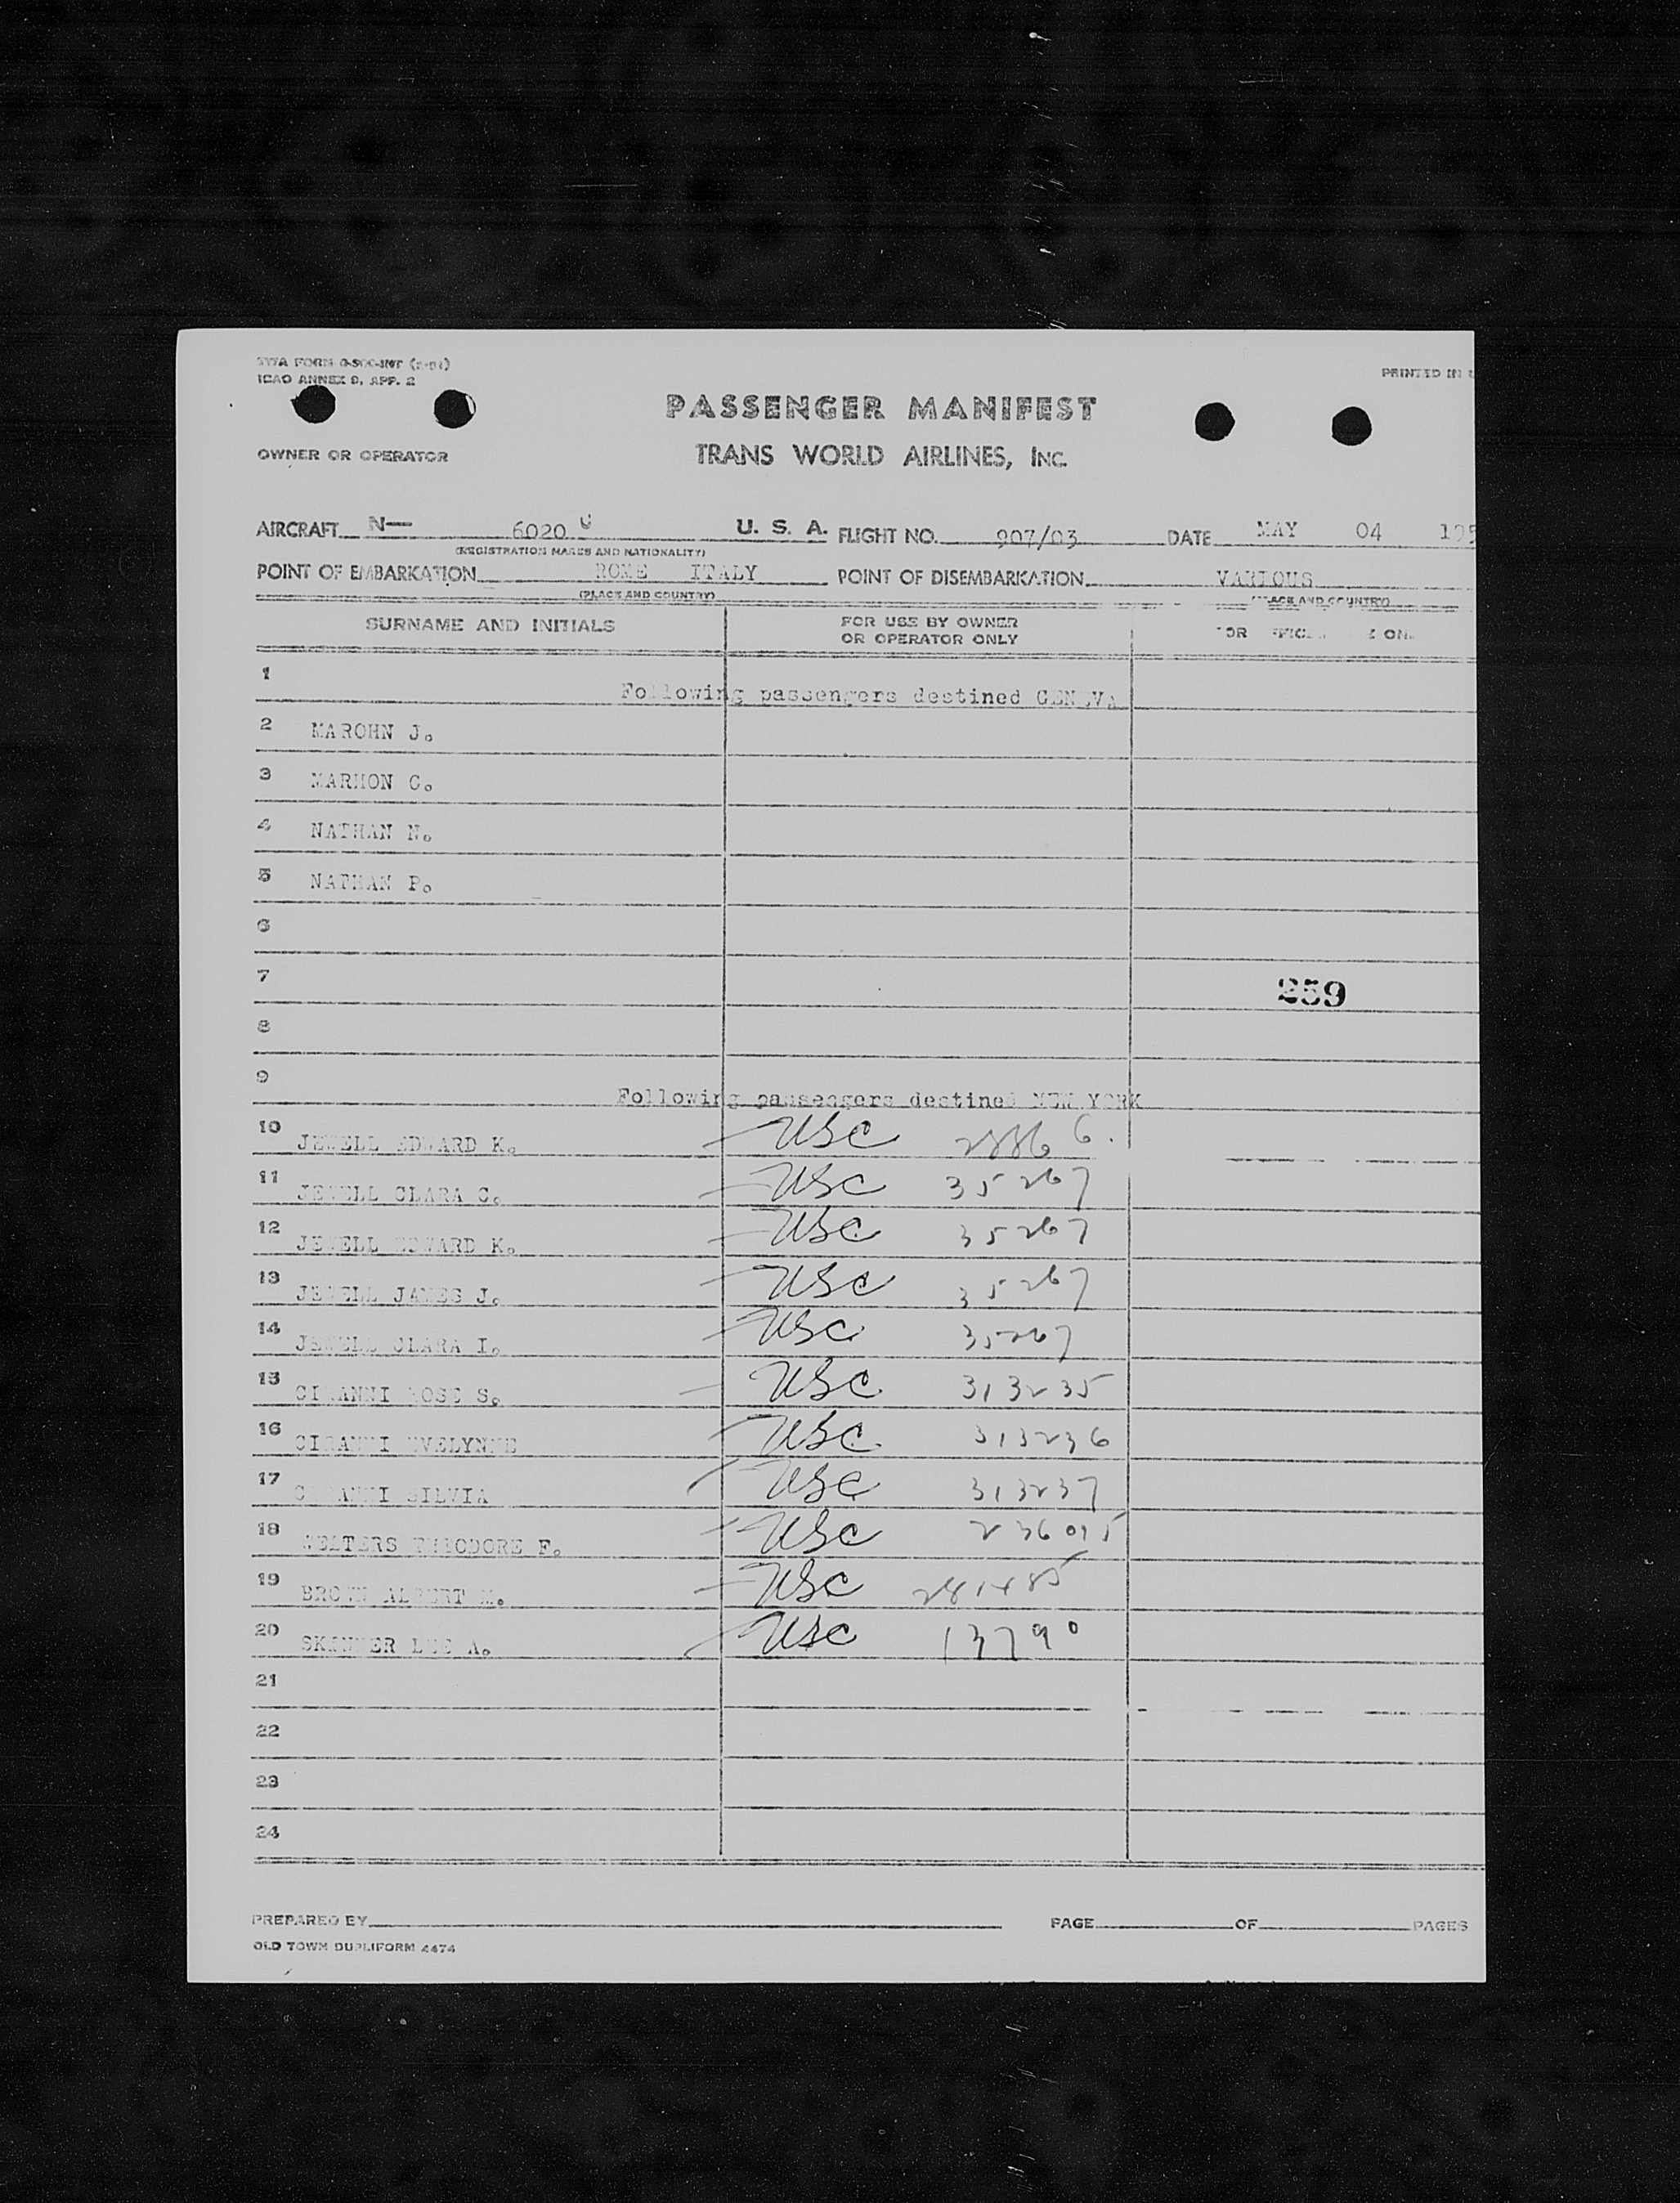 TWA FORM
ICAO ANNEX 9, APP. 2
PRINTED IN
PASSENGER MANIFEST
OWNER OR OPERATOR
TRANS WORLD AIRLINES, INC.
AIRCRAFT N— 6020 C U. S. A. FLIGHT NO. 907/03 DATE MAY 04 195
(REGISTRATION MARKS AND NATIONALITY)
POINT OF EMBARKATION ROME ITALY POINT OF DISEMBARKATION VARIOUS
(PLACE AND COUNTRY) (PLACE AND COUNTRY)
SURNAME AND INITIALS FOR USE BY OWNER
OR OPERATOR ONLY
1 Following passengers destined GENEVA
2 MAROHN J.
3 MARHON C.
4 NATHAN N.
5 NATHAN P.
6
7 259
8
9 Following passengers destined NEW YORK
10 JEWELL EDWARD K. USC
11 JEWELL CLARA C. USC 35267
12 JEWELL EDWARD K. USC 35267
13 JEWELL JAMES J. USC 35267
14 JEWELL CLARA I. USC 35267
15 ROSE S. USC 313235
16 EVELYNNE USC 313236
17 SILVIA USC 313237
18 THEODORE F. USC 236015
19 BROWN ALBERT M. USC
20 SKINNER LEE A. USC 13790
21
22
23
24
PREPARED BY PAGE OF PAGES
OLD TOWN DUPLIFORM 4474